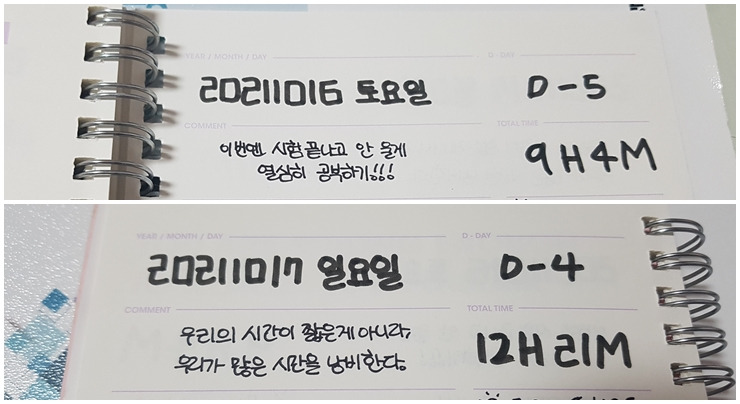 YEAR / MONTH / DAY
D - DAY
20211016 토요일
D-5
COMMENT
TOTAL TIME
이번엔 시험끝나고 안 울게
열심히 공부하기!!!
9H4M
YEAR / MONTH / DAY
D - DAY
20211017 일요일
D-4
COMMENT
TOTAL TIME
우리의 시간이 짧은게 아니라,
우리가 많은 시간을 낭비한다.
12H 21M